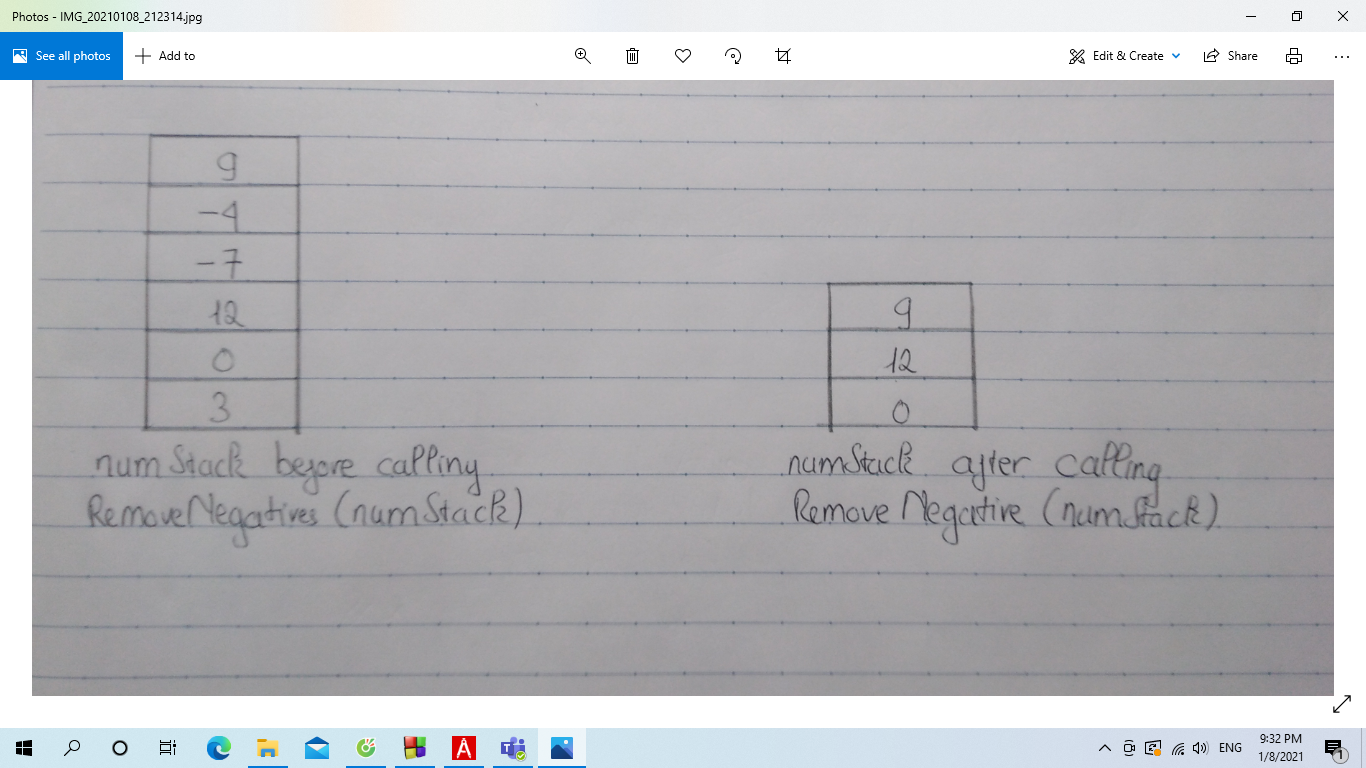 Photos - IMG_20210108_212314.jpg
See all photos
Add to
Edit & Create
Share
9
-4
-7
12
0
3
numStack before calling
RemoveNegatives (numStack)
9
12
0
numStack after calling
RemoveNegative (numStack)
ENG
9:32 PM
1/8/2021
1